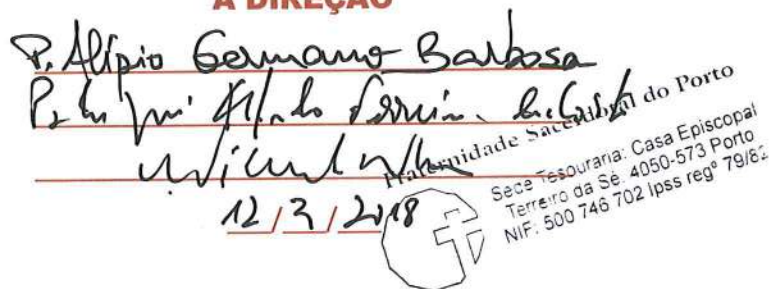 A DIREÇÃO
P. Alípio Germano Barbosa
12/3/2018
Fraternidade Sacerdotal do Porto
Sede Tesouraria: Casa Episcopal
Terreiro da Sé. 4050-573 Porto
NIF: 500 746 702 Ipss regº 79/82